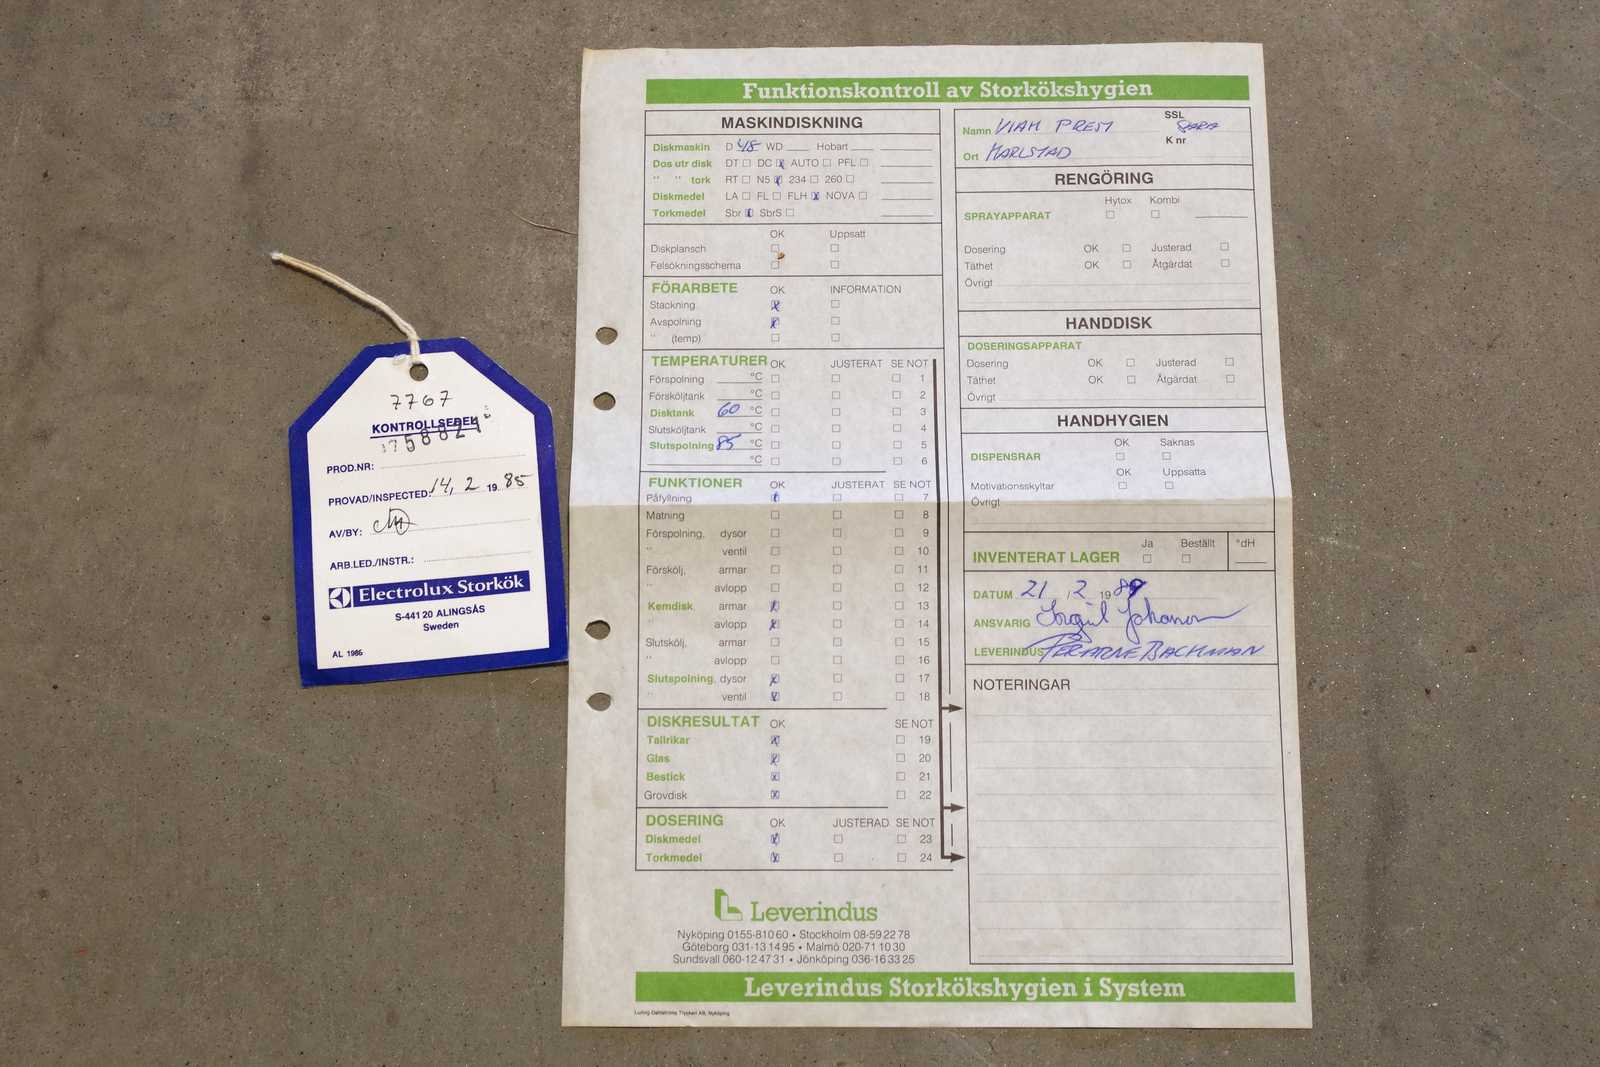 7767
KONTROLLSEDEL
PROD.NR:
PROVAD/INSPECTED: 14, 2 1985
AV/BY:
ARB.LED./INSTR.:
Electrolux Storkök
S-441 20 ALINGSÅS
Sweden
AL 1986
Funktionskontroll av Storkökshygien
MASKINDISKNING
Diskmaskin D 48 WD Hobart
Dos utr disk DT DC AUTO PFL
" " tork RT N5 234 260
Diskmedel LA FL FLH NOVA
Torkmedel Sbr SbrS
OK Uppsatt
Diskplansch
Felsökningsschema
FÖRARBETE OK INFORMATION
Stackning
Avspolning
" (temp)
TEMPERATURER OK JUSTERAT SE NOT
Förspolning °C 1
Försköljtank °C 2
Disktank 60 °C 3
Slutsköljtank °C 4
Slutspolning 85 °C 5
°C 6
FUNKTIONER OK JUSTERAT SE NOT
Påfyllning 7
Matning 8
Förspolning, dysor 9
" ventil 10
Förskölj, armar 11
" avlopp 12
Kemdisk, armar 13
" avlopp 14
Slutskölj, armar 15
" avlopp 16
Slutspolning, dysor 17
" ventil 18
DISKRESULTAT OK SE NOT
Tallrikar 19
Glas 20
Bestick 21
Grovdisk 22
DOSERING OK JUSTERAD SE NOT
Diskmedel 23
Torkmedel 24
Leverindus
Nyköping 0155-810 60 • Stockholm 08-59 22 78
Göteborg 031-13 14 95 • Malmö 020-71 10 30
Sundsvall 060-12 47 31 • Jönköping 036-16 33 25
SSL
Namn
K nr
Ort
RENGÖRING
Hytox Kombi
SPRAYAPPARAT
Dosering OK Justerad
Täthet OK Åtgärdat
Övrigt
HANDDISK
DOSERINGSAPPARAT
Dosering OK Justerad
Täthet OK Åtgärdat
Övrigt
HANDHYGIEN
OK Saknas
DISPENSRAR
OK Uppsatta
Motivationsskyltar
Övrigt
INVENTERAT LAGER Ja Beställt °dH
DATUM 21 / 2 19
ANSVARIG
LEVERINDUS PER ARNE BACKMAN
NOTERINGAR
Leverindus Storkökshygien i System